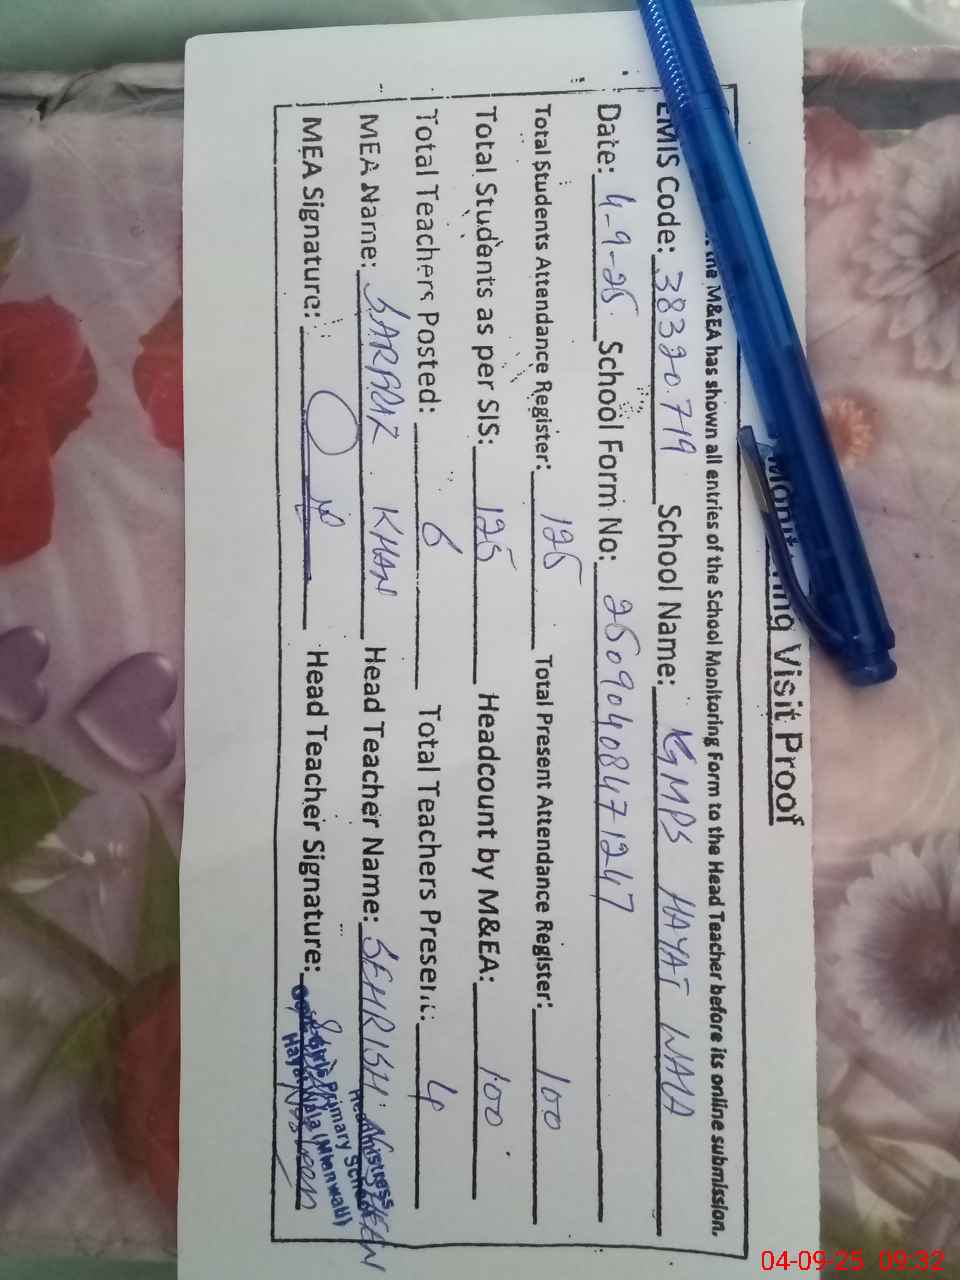 Monitoring Visit Proof
the M&EA has shown all entries of the School Monitoring Form to the Head Teacher before its online submission.
EMIS Code: 38320719 School Name: GGMPS HAYAT WALA
Date: 4-9-25 School Form No: 25090408471247
Total Students Attendance Register: 125 Total Present Attendance Register: 100
Total Students as per SIS: 125 Headcount by M&EA: 100
Total Teachers Posted: 6 Total Teachers Present: 4
MEA Name: SARFRAZ KHAN Head Teacher Name: SEHRISH
MEA Signature: Head Teacher Signature:
Headmistress
Govt. Girls Primary School
(Mianwali)
04-09-25 09:32